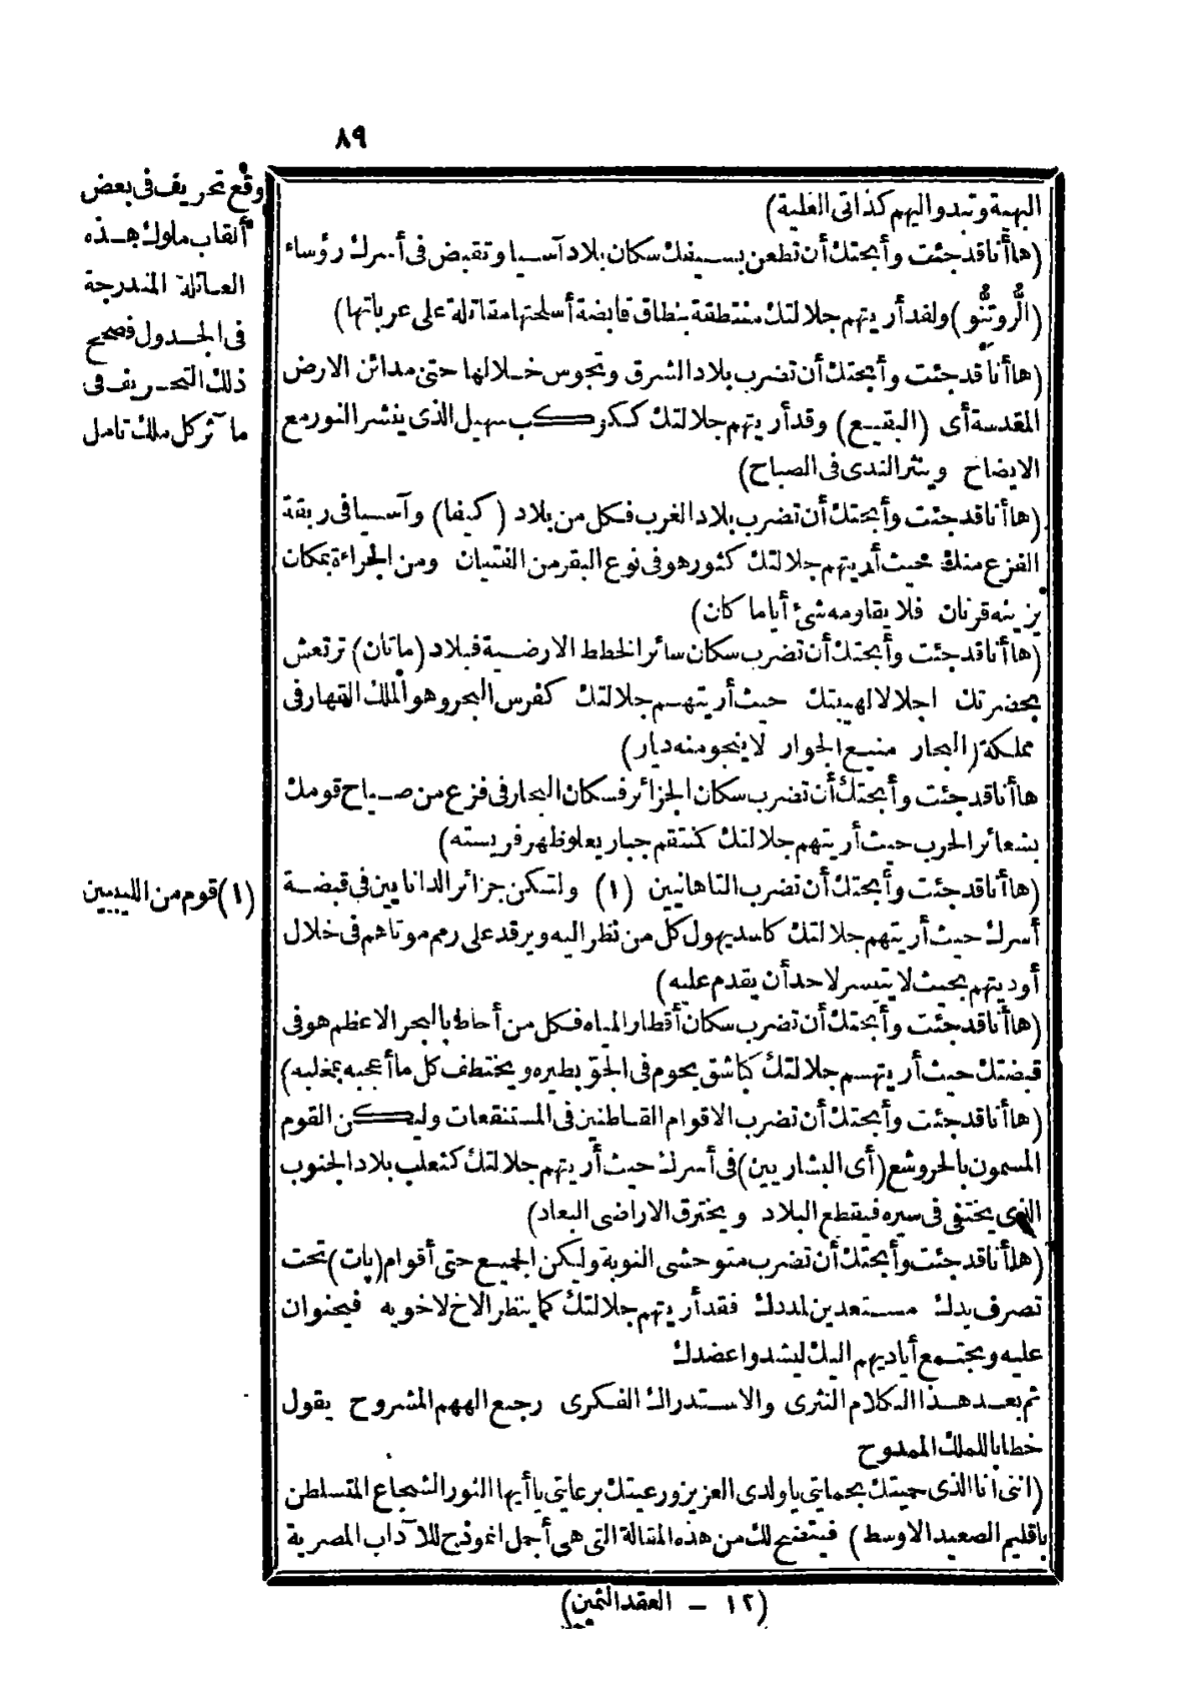 ٨٩
البهية وتبدو اليهم كذاتى العلية)
(ها أنا قد جئت وأبحتك أن تطعن بسيفك سكان بلاد آسيا وتقبض فى أسرك رؤساء
(الرُّوتِنُّو) ولقد أريتهم جلالتك منتطقة بنطاق قابضة أسلحتها مقاتلة على عرباتها)
(ها أنا قد جئت وأبحتك أن تضرب بلاد الشرق وتجوس خلالها حتى مدائن الارض
المقدسة أى (البقيع) وقد أريتهم جلالتك ككوكب سهيل الذى ينشر النور مع
الايضاح وينثر الندى فى الصباح)
(ها أنا قد جئت وأبحتك أن تضرب بلاد الغرب فكل من بلاد (كيفا) وآسيا فى ربقة
الفزع منك حيث أريتهم جلالتك كثور هو فى نوع البقر من الفتيان ومن الجراءة بمكان
يزينه قرنان فلا يقاومه شئ أيا ما كان)
(ها أنا قد جئت وأبحتك أن تضرب سكان سائر الخطط الارضية فبلاد (ماتان) ترتعش
بحضرتك اجلالا لهيبتك حيث أريتهم جلالتك كفرس البحر وهو الملك القهار فى
مملكة (البحار منيع الجوار لا ينجو منه ديار)
ها أنا قد جئت وأبحتك أن تضرب سكان الجزائر فسكان البحار فى فزع من صياح قومك
بشعائر الحرب حيث أريتهم جلالتك كمنتقم جبار يعلو ظهر فريسته)
(ها أنا قد جئت وأبحتك أن تضرب التاهانيين (١) ولتكن جزائر الدانايين فى قبضة
أسرك حيث أريتهم جلالتك كاسد يهول كل من نظر اليه ويرقد على رمم موتاهم فى خلال
أوديتهم بحيث لا يتيسر لاحد أن يقدم عليه)
(ها أنا قد جئت وأبحتك أن تضرب سكان أقطار المياه فكل من أحاط بالبحر الاعظم هو فى
قبضتك حيث أريتهم جلالتك كباشق يحوم فى الجو بطيره ويختطف كل ما أعجبه بمخلبه)
(ها أنا قد جئت وأبحتك أن تضرب الاقوام القاطنين فى المستنقعات وليكن القوم
المسمون بالحروشع (أى البشاريين) فى أسرك حيث أريتهم جلالتك كثعلب بلاد الجنوب
الذى يختفى فى سيره فيقطع البلاد ويخترق الاراضى البعاد)
(ها أنا قد جئت وأبحتك أن تضرب متوحشى النوبة وليكن الجميع حتى أقوام (پات) تحت
تصرف يدك مستعدين لمددك فقد أريتهم جلالتك كما ينتظر الاخ لاخويه فيحنوان
عليه ويجتمع أياديهم اليك ليشدوا عضدك
ثم بعد هذا الكلام النثرى والاستدراك الفكرى رجع الههم المشروح يقول
خطابا للملك الممدوح
(اننى أنا الذى حميتك بحمايتى يا ولدى العزيز ورعيتك برعايتى يا أيها النور الشجاع المتسلطن
باقليم الصعيد الاوسط) فيتضح لك من هذه المقالة التى هى أجمل انموذج للآداب المصرية
وقع تحريف فى بعض
ألقاب ملوك هذه
العائلة المندرجة
فى الجدول فصحح
ذلك التحريف فى
مآثر كل ملك تامل
(١) قوم من الليبيين
(١٢ – العقد الثمين)